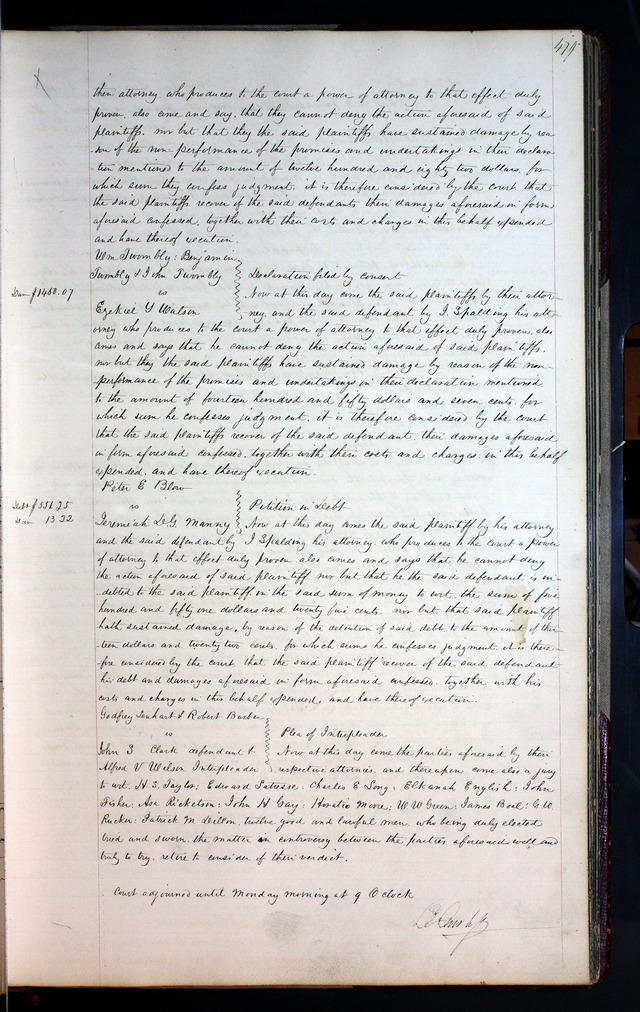 their attorney who produces to the court a power of attorney to that effect duly
proven also come and say that they cannot deny the action aforesaid of said
plaintiffs. nor but that they the said plaintiffs have sustained damage by rea-
son of the non performance of the promises and undertakings in their declara-
tion mentioned to the amount of twelve hundred and eighty two dollars, for
which sum they confess judgment. it is therefore considered by the court that
the said plaintiffs recover of the said defendants their damages aforesaid in form
aforesaid confessed, together with their costs and charges in this behalf expended
and have thereof execution.
Wm Twombly: Benjamin
Twombly & John Twombly Declaration filed by consent
Dam $1450.07 vs Now at this day come the said plaintiffs by their attor-
Ezekiel Y Watson ney. and the said defendant by I Spalding his att-
orney who produces to the court a power of attorney to that effect duly proven, also
comes and says that he cannot deny the action aforesaid of said plaintiffs.
nor but they the said plaintiffs have sustained damage by reason of the non-
performance of the promises and undertakings in their declaration mentioned
to the amount of fourteen hundred and fifty dollars and seven cents. for
which sum he confesses judgment, it is therefore considered by the court
that the said plaintiffs recover of the said defendant, their damages aforesaid
in form aforesaid confessed, together with their costs and charges in this behalf
expended, and have thereof execution.
Peter E Blow
Debt $551.25 vs Petition in Debt
Dam 13.22 Jeremiah DeG. Manny Now at this day comes the said plaintiff by his attorney
and the said defendant by I Spalding his attorney who produces to the court a power
of attorney to that effect duly proven also comes and says that he cannot deny
the action aforesaid of said plaintiff nor but that he the said defendant is in-
debted to the said plaintiff in the said sum of money to wit. the sum of five
hundred and fifty one dollars and twenty five cents. nor but that said plaintiff
hath sustained damage, by reason of the detention of said debt to the amount of thir-
teen dollars and twenty two cents. for which sums he confesses judgment. it is there-
fore considered by the court that the said plaintiff recover of the said defendant
his debt and damages aforesaid in form aforesaid confessed. together with his
costs and charges in this behalf expended, and have thereof execution.
Godfrey Lenhart & Robert Barber
vs Plea of Interpleader
John S Clark defendant & Now at this day come the parties aforesaid by their
Alfred V Wilson Interpleader respective attornies. and thereupon come also a jury
to wit. H. S. Taylor; Edward Charles E Long; Elkanah English; John
Fisher; Asa Ricketson; John H Gay; Horatio Moore; W W Green; James Boal; C W.
Rucker; Patrick M Dillon, twelve good and lawful men who being duly elected
tried and sworn. the matter in controversy between the parties aforesaid well and
truly to try. retire to consider of their verdict.
Court adjourned until Monday morning at 9 O clock